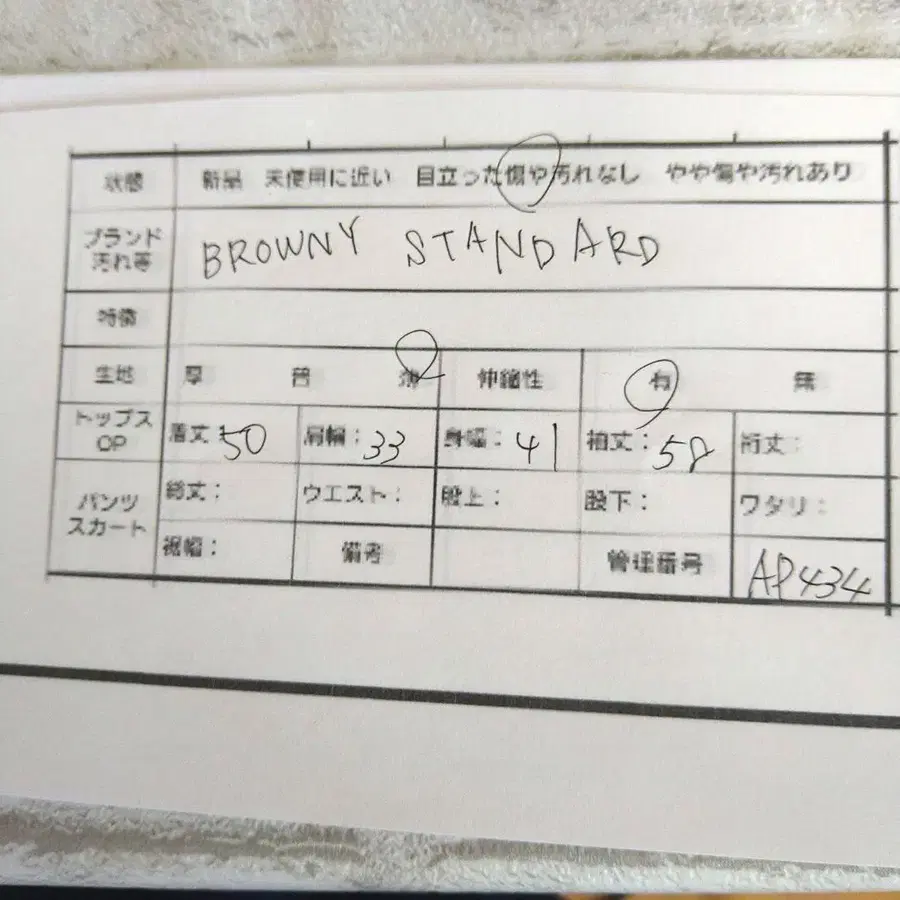 状態 新品 未使用に近い 目立った傷や汚れなし やや傷や汚れあり
ブランド
汚れ等 BROWNY STANDARD
特徴
生地 厚 普 薄 伸縮性 有 無
トップス
OP 着丈:50 肩幅:33 身幅:41 袖丈:58 裄丈:
パンツ
スカート 総丈: ウエスト: 股上: 股下: ワタリ:
裾幅: 備考 管理番号 AP434